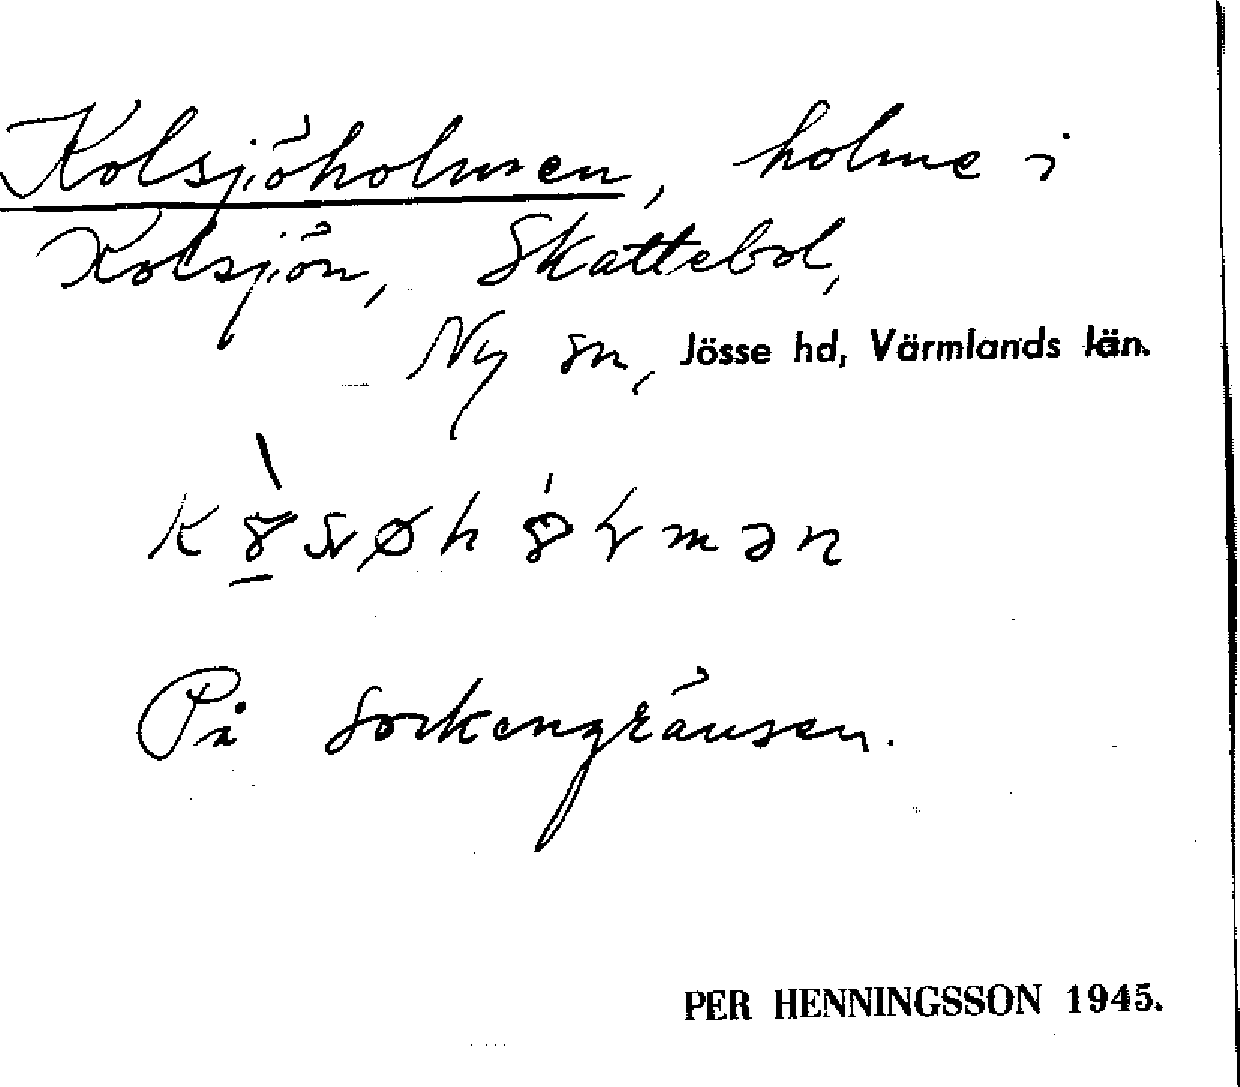 Kolsjöholmen, holme i
Kolsjön, Skattebol,
Ny sn, Jösse hd, Värmlands län.
På sockengränsen.
PER HENNINGSSON 1945.